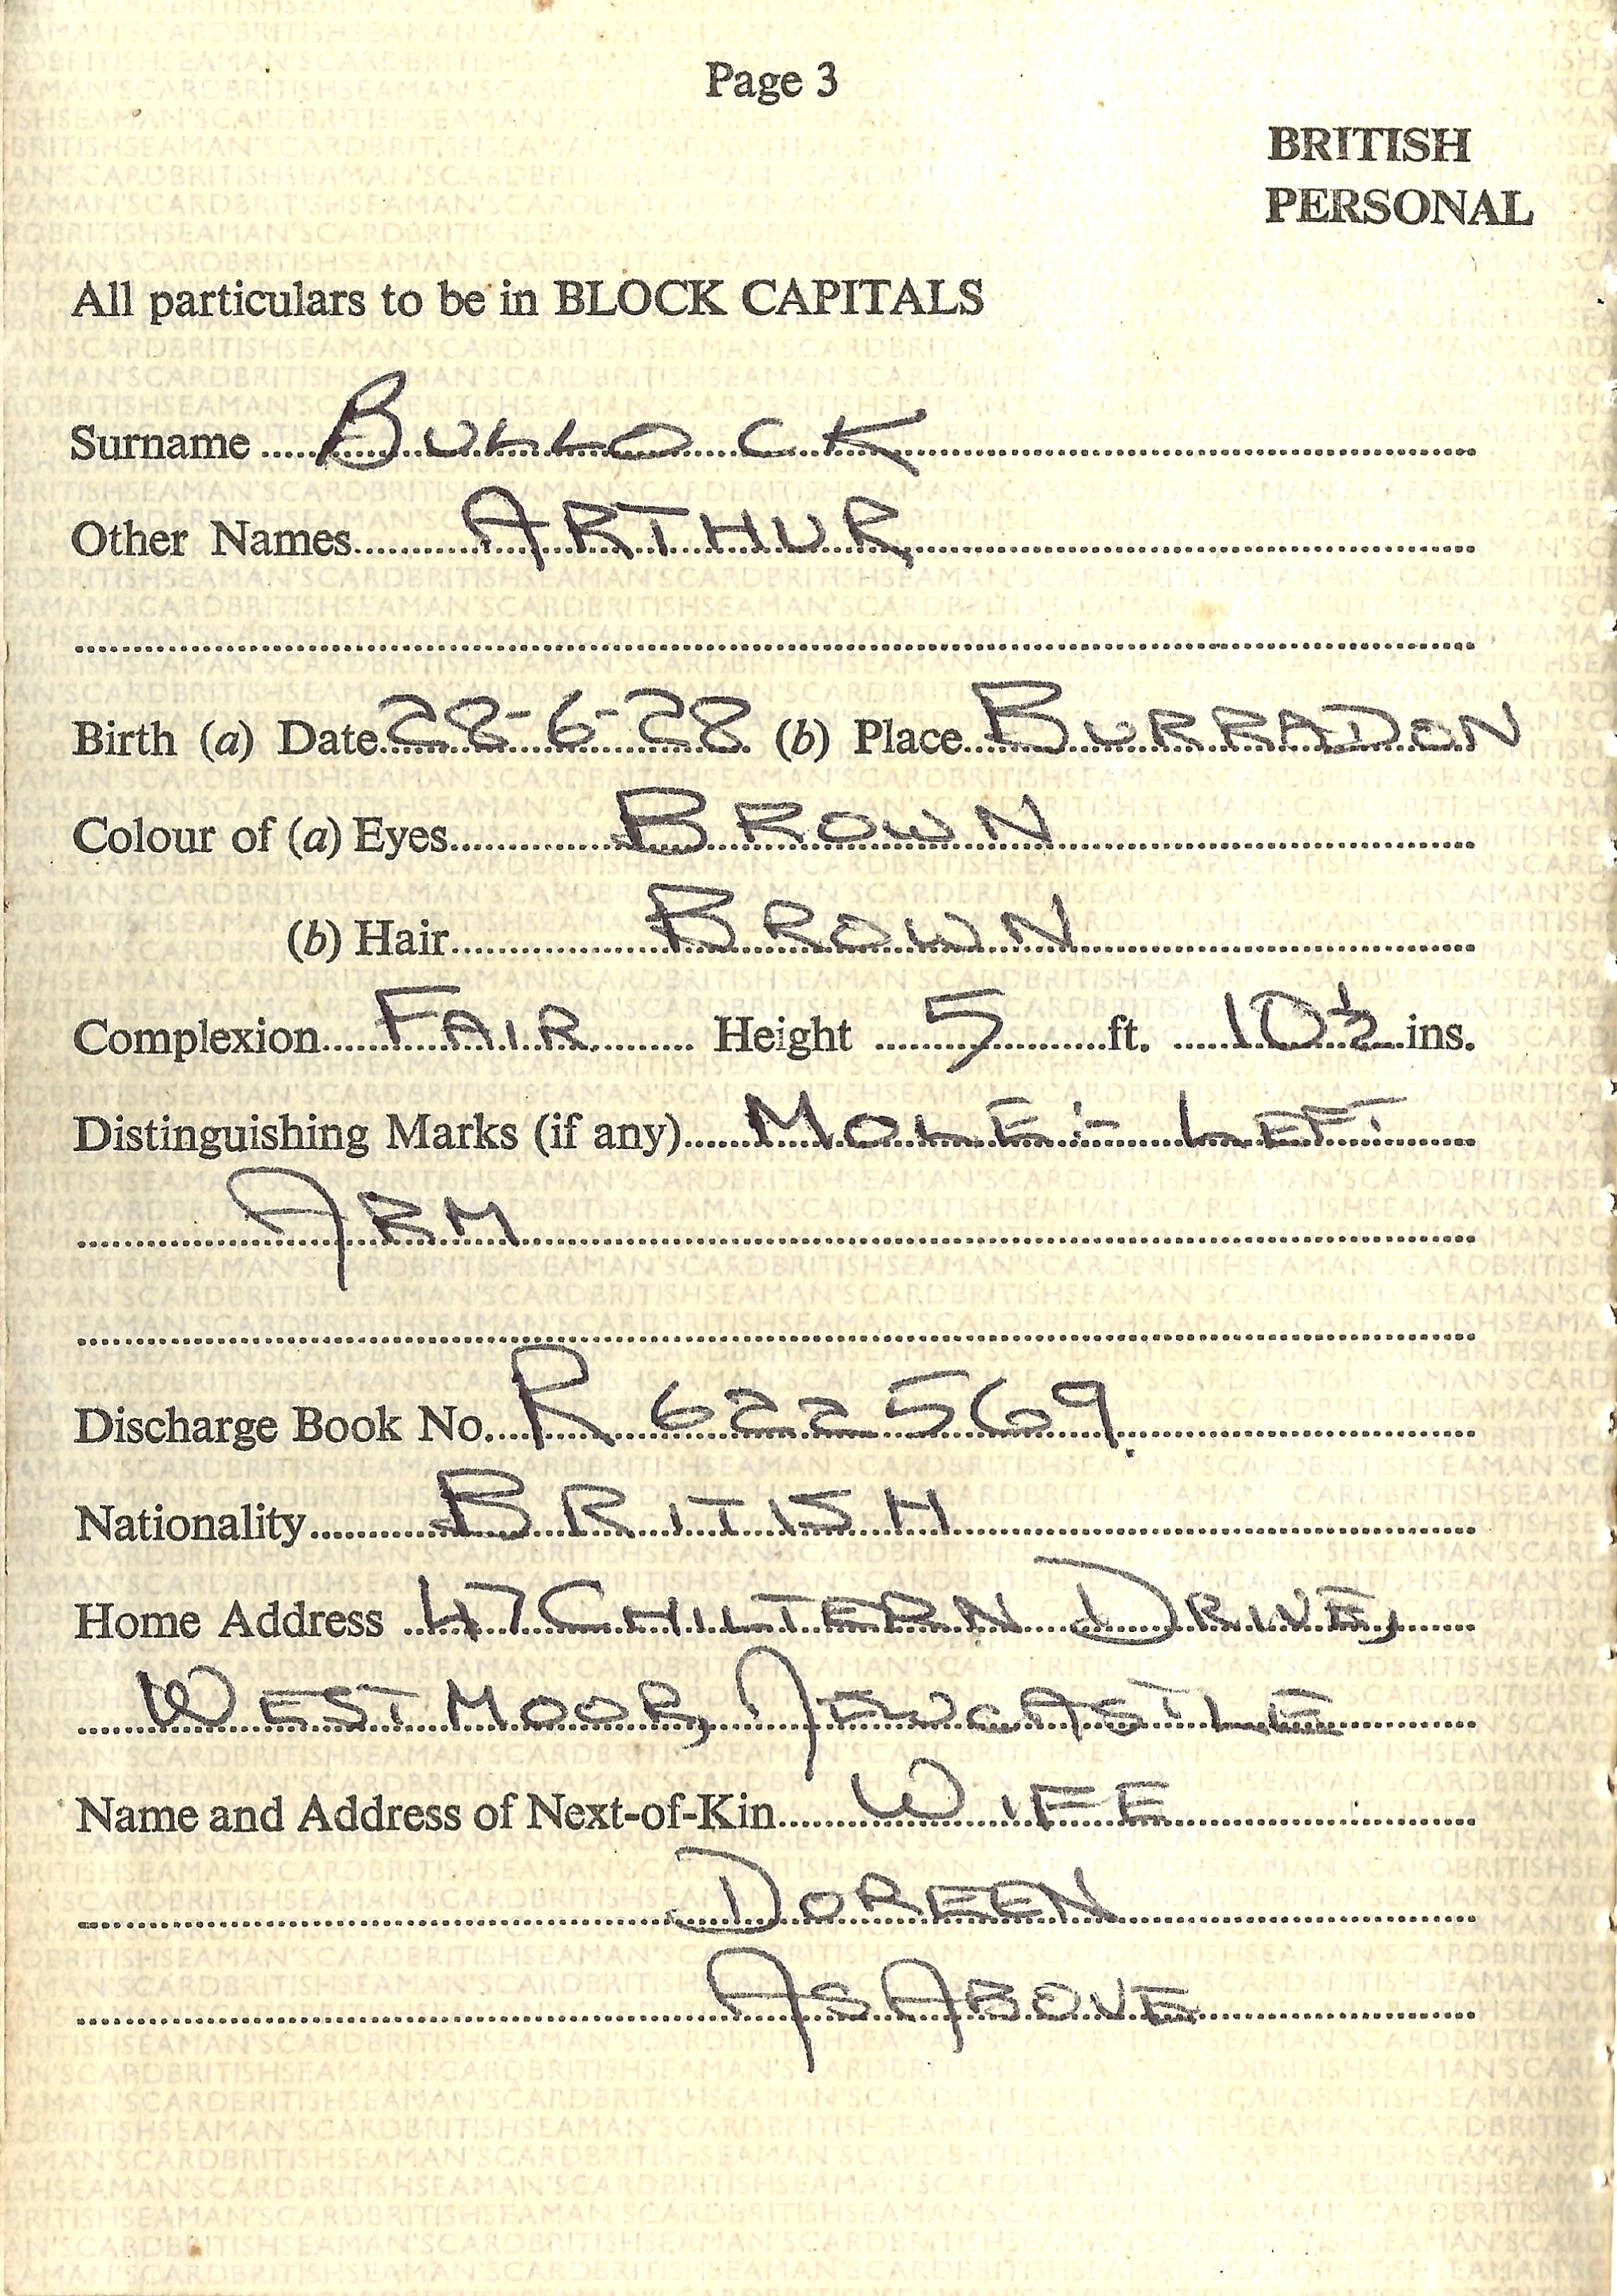 Page 3
BRITISH
PERSONAL
All particulars to be in BLOCK CAPITALS
Surname BULLOCK
Other Names ARTHUR
Birth (a) Date 28-6-28 (b) Place BURRADON
Colour of (a) Eyes BROWN
(b) Hair BROWN
Complexion FAIR Height 5 ft. 10½ ins.
Distinguishing Marks (if any) MOLE :- LEFT
ARM
Discharge Book No. R 622569.
Nationality BRITISH
Home Address 47 CHILTERN DRIVE,
WESTMOOR, NEWCASTLE
Name and Address of Next-of-Kin WIFE
DOREEN
AS ABOVE